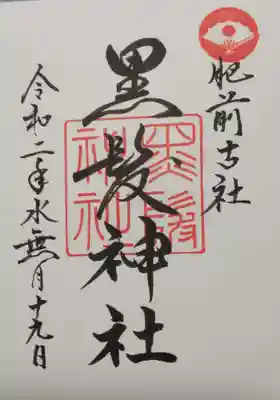 肥前古社
黒髪神社
令和二年水無月十九日